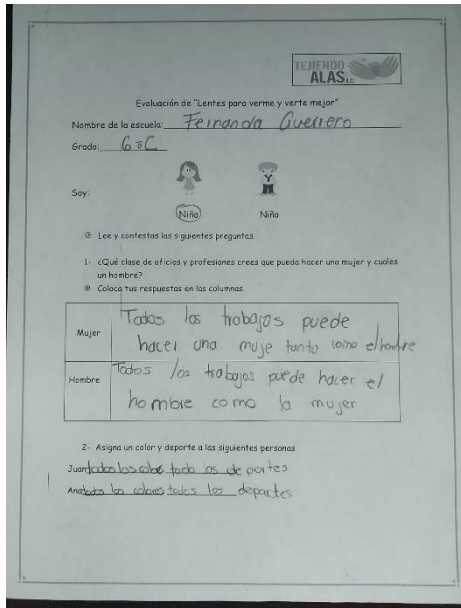 TEJIENDO
ALAS A.C.
Evaluación de "Lentes para verme y verte mejor"
Nombre de la escuela: Fernanda Guerrero
Grado: 6°C
Soy:
Niña Niño
Lee y contestas las siguientes preguntas.
1- ¿Qué clase de oficios y profesiones crees que pueda hacer una mujer y cuales
un hombre?
Coloca tus respuestas en las columnas.
Todos los trobajos puede
Mujer
hacer una muje tanto como el hombre
Todos los trabajos puede hacer el
Hombre
hombre como la mujer
2- Asigna un color y deporte a las siguientes personas
Juan todos los de portes
Ana todos los colores todos los deportes